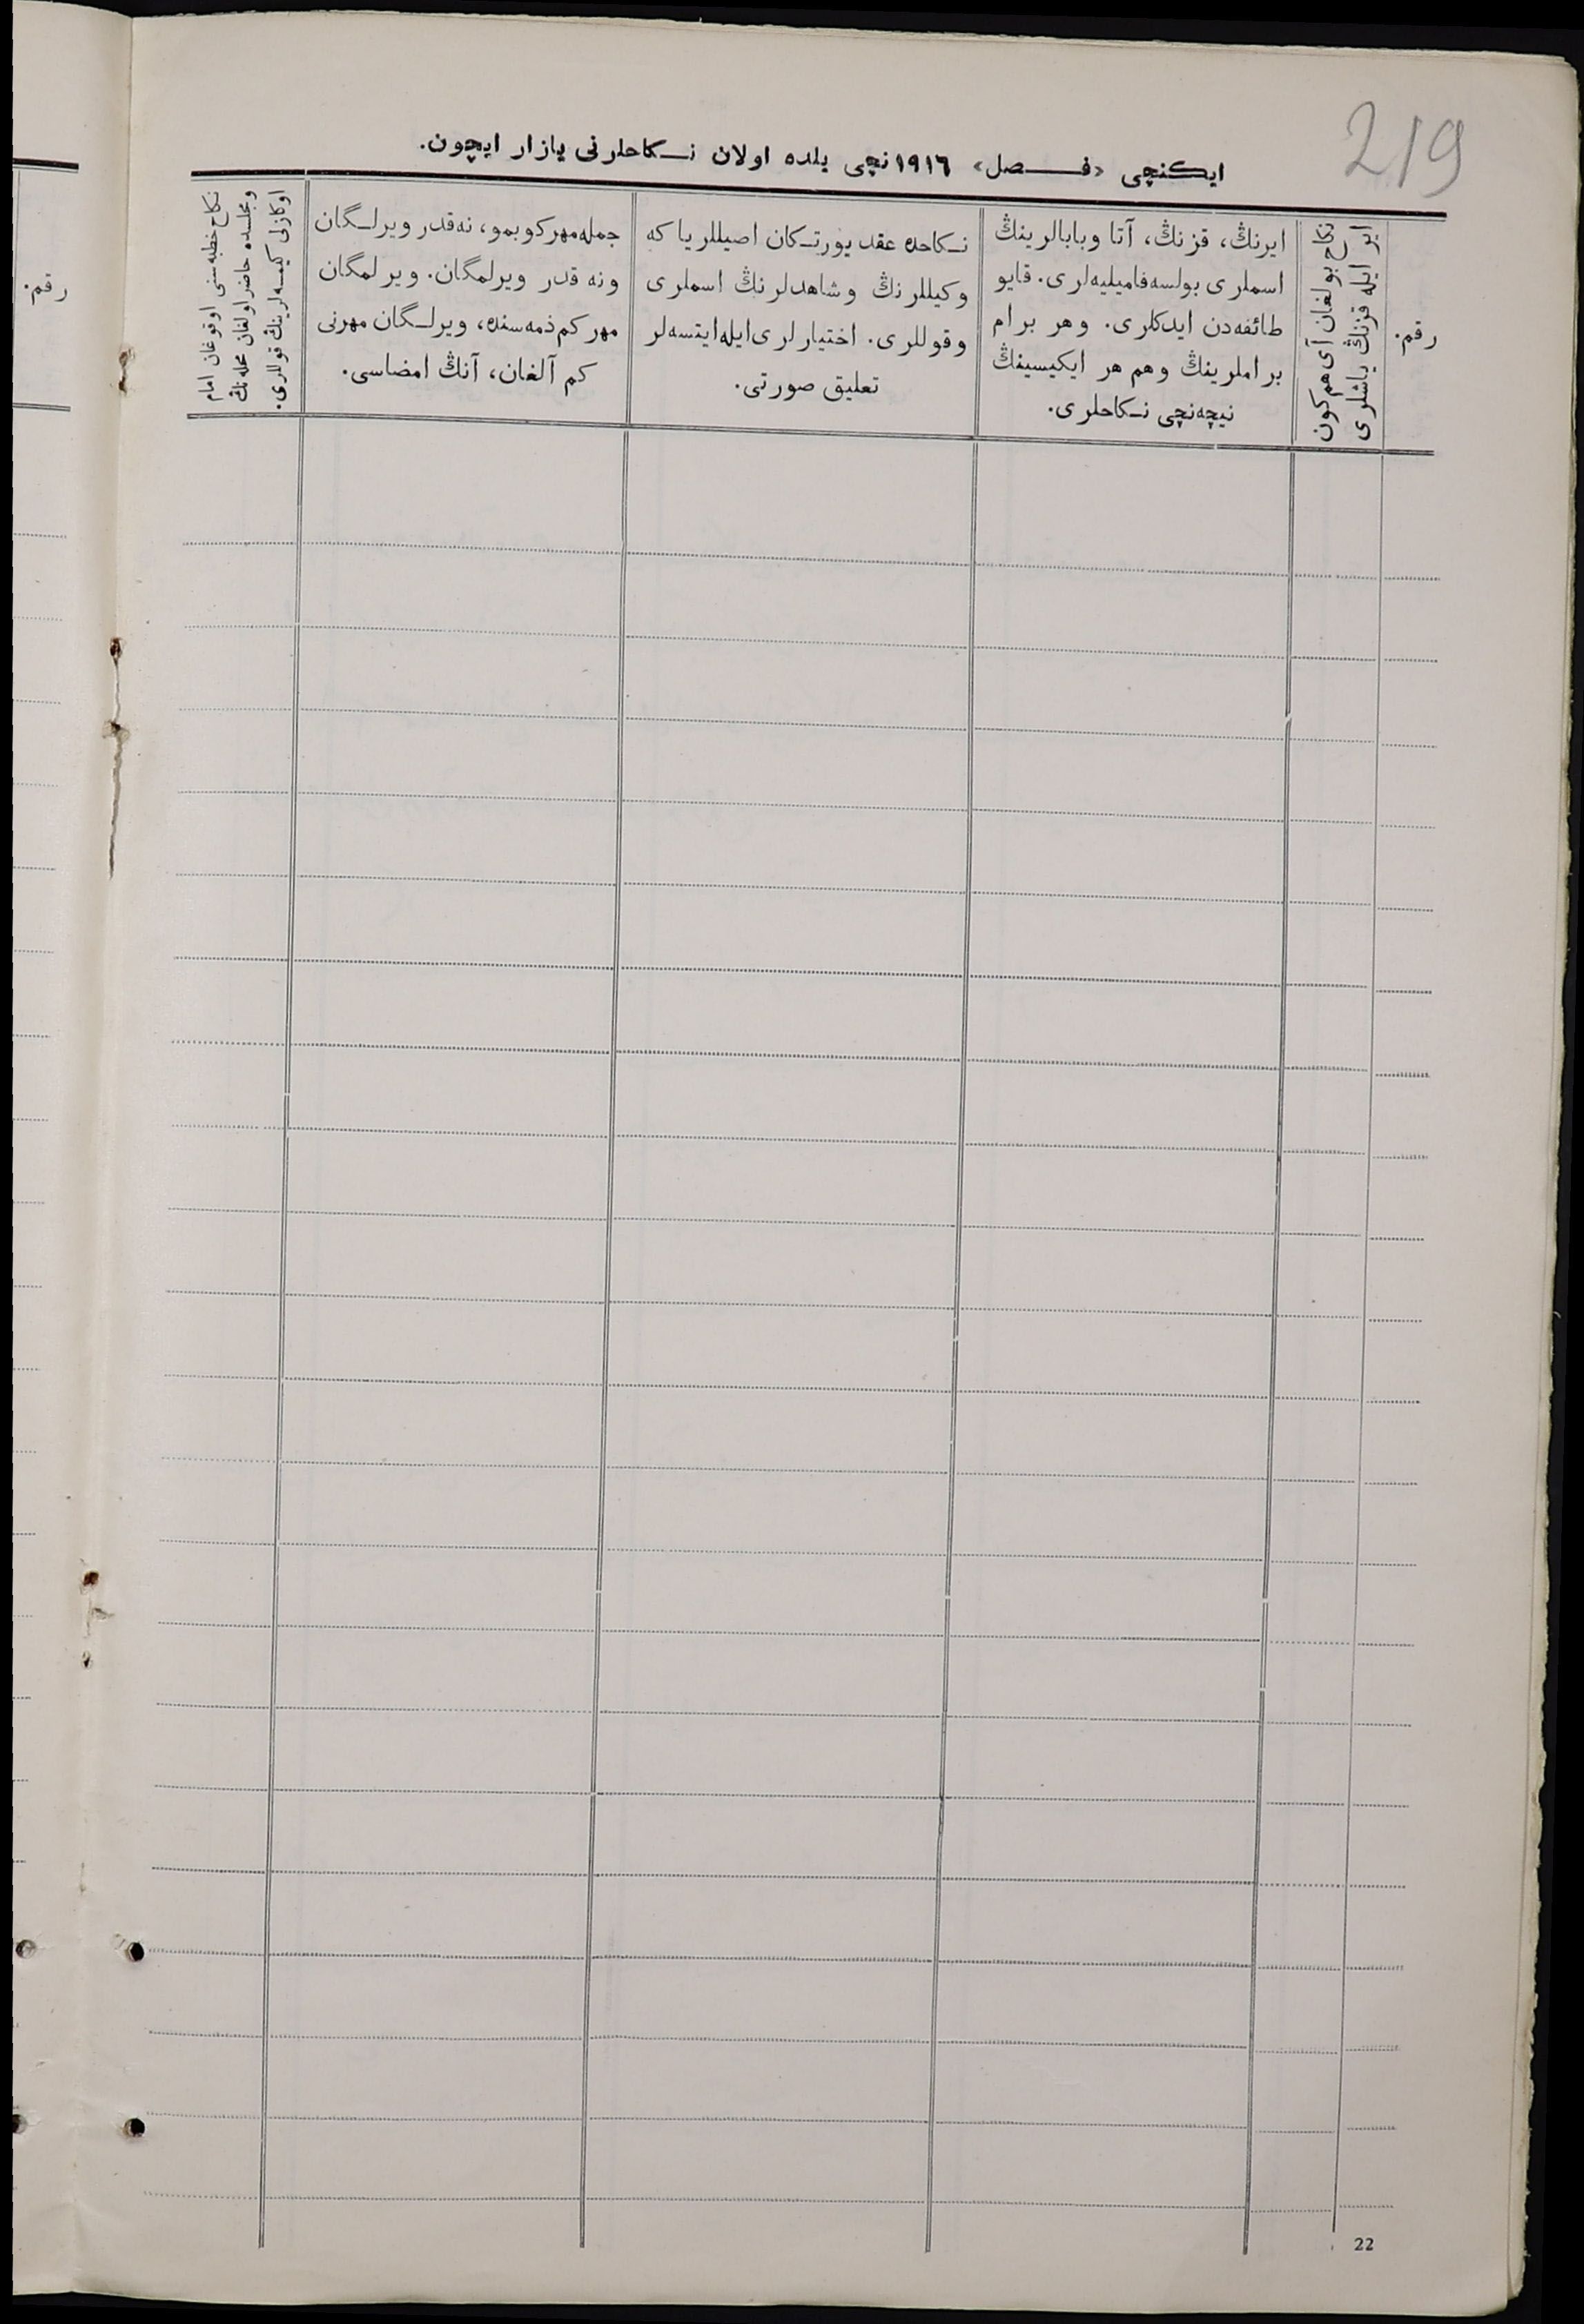 219
ایکنچی «فصل» ١٩١٦نچی یلده اولان نکاحلرنی یازار ایچون.
رقم.
نکاح بولغان آی هم کون
ایر ایله قزنڭ یاشلری
ایرنڭ، قزنڭ، آتا وبابالرینڭ
اسملری بولسه فامیلیه‌لری. قایو
طائفه‌دن ایدکلری. وهر برام
براملرینڭ وهم هر ایکیسینڭ
نیچه‌نچی نکاحلری.
نکاحده عقد یورتکان اصیللر یا که
وکیللرنڭ وشاهدلرنڭ اسملری
وقوللری. اختیارلری ایله ایتسه‌لر
تعلیق صورتی.
جمله مهر کوبمو، نه‌قدر ویرلگان
ونه قدر ویرلمگان. ویرلمگان
مهر کم ذمه‌سنده، ویرلگان مهرنی
کم آلغان، آنڭ امضاسی.
نکاح خطبه‌سنی اوقوغان امام
ومجلسده حاضر اولغان محله‌نڭ
اوکازلی کیمسه‌لرینڭ قوللری.
رقم.
22